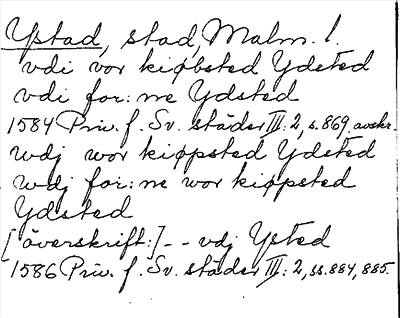 Ystad, stad, Malm. l.
vdi vor kiøbsted Ydsted
vdi for:ne Ydsted
1584 Priv. f. Sv. städer III: 2, s. 869, avskr.
wdj wor kiøpsted Ydsted
wdj for:ne wor kiøpsted
Ydsted
[överskrift:] -- vdj Ysted
1586 Priv. f. Sv. städer III: 2, ss. 884, 885.